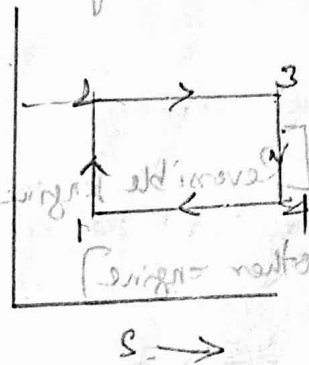 2 3
1 4
S →